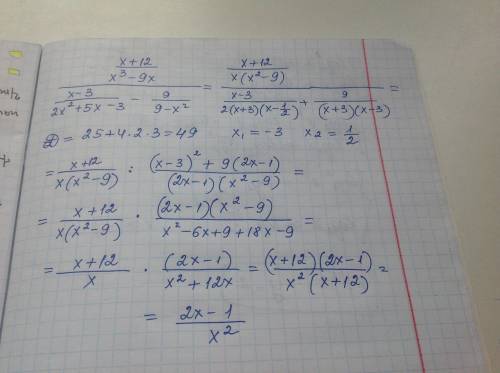 (x+12)/(x³-9x) / ((x-3)/(2x²+5x-3) - 9/(9-x²)) = (x+12)/(x(x²-9)) / ((x-3)/(2(x+3)(x-1/2)) + 9/((x+3)(x-3))) =
D = 25+4·2·3=49 x₁=-3 x₂=1/2
= (x+12)/(x(x²-9)) : ((x-3)²+9(2x-1))/((2x-1)(x²-9)) =
= (x+12)/(x(x²-9)) · ((2x-1)(x²-9))/(x²-6x+9+18x-9) =
= (x+12)/x · (2x-1)/(x²+12x) = ((x+12)(2x-1))/(x²(x+12)) =
= (2x-1)/x²